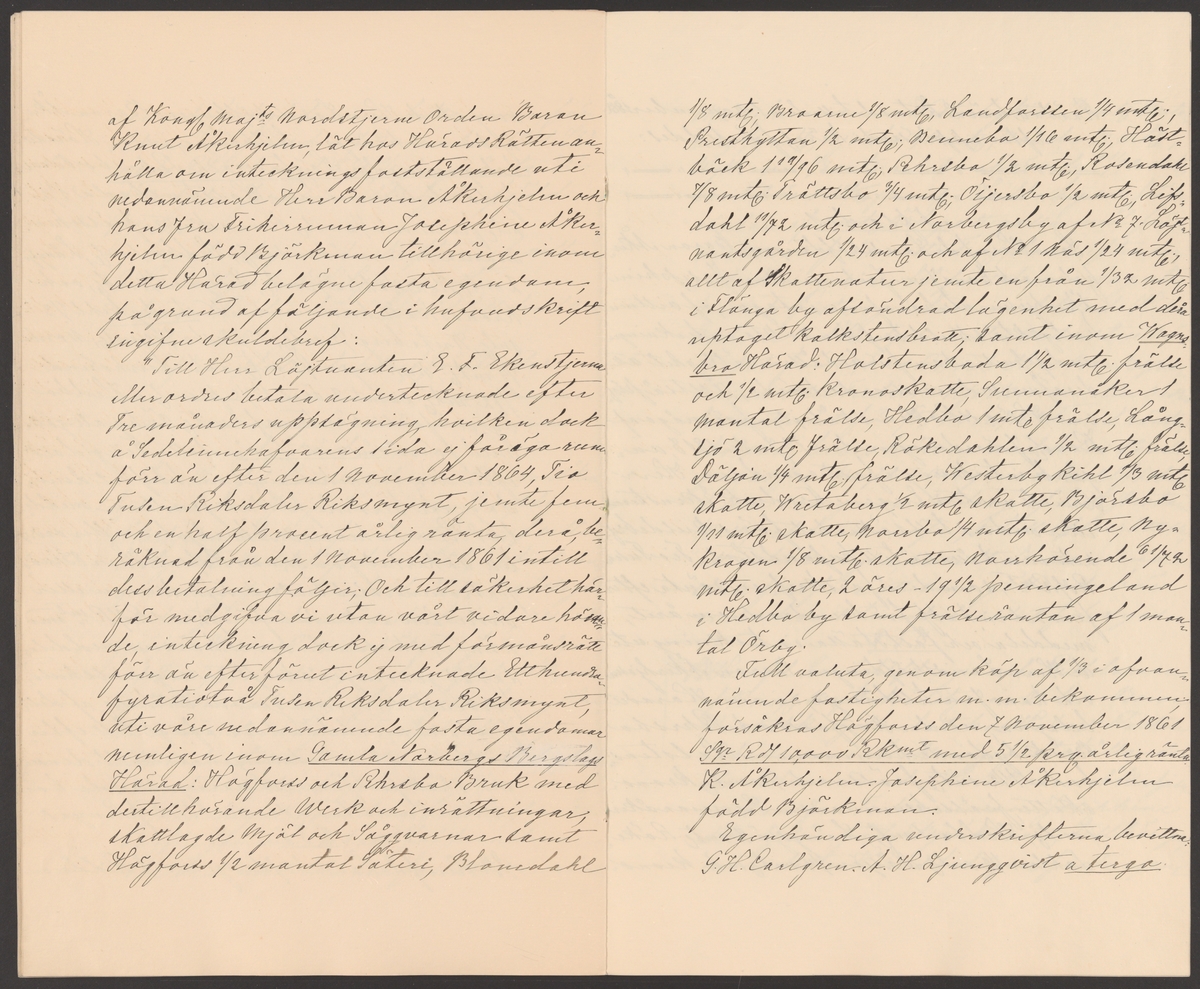 af Kongl. Majts Nordstjerne Orden Baron
Knut Åkerhjelm, lät hos HäradsRätten an-
hålla om inteckningsfastställande uti
nedannämnde Herr Baron Åkerhjelm och
hans fru Friherrinnan Josephine Åker-
hjelm född Björkman tillhörige inom
detta Härad belägne fasta egendom,
på grund af följande i hufvudskrift
ingifne skuldebref:
"Till Herr Löjtnanten E. F. Ekenstjerna
eller ordres betala undertecknade efter
Tre månaders uppsägning, hvilken dock
å Sedelinnehafvarens sida ej får äga rum
förr än efter den 1 November 1864, Tio
Tusen Riksdaler Riksmynt, jemte fem
och en half procent årlig ränta, derå be-
räknad från den 1 November 1861 intill
dess betalning följer; Och till säkerhet här-
för medgifva vi utan vårt vidare höran-
de, inteckning dock ej med förmånsrätt
förr än efter förut intecknade Etthundra-
fyratiotvå Tusen Riksdaler Riksmynt,
uti våre nedannämnde fasta egendomar
nemligen inom Gamla Norbergs Bergslags
Härad: Högfors och Rhrsbo Bruk med
dertillhörande Werk och inrättningar,
skattlagde Mjöl och Sågqvarnar samt
Högfors 1/2 mantal Säteri, Blomedahl
1/8 mtl; Broarne 1/8 mtl, Landforssen 1/4 mtl;
Presthyttan 1/2 mtl; Bennebo 1/16 mtl, Häst-
bäck 1 19/96 mtl, Rhrsbo 1/2 mtl, Rosendahl
7/8 mtl. Trättsbo 3/4 mtl; Öijersbo 1/2 mtl, Lif-
dahl 19/72 mtl; och i Norbergsby af No 7. Löjt-
nantsgården 1/24 mtl; och af No 1 Näs 1/24 mtl;
allt af Skattenatur jemte en från 1/32 mtl
i Flänga by afsöndrad lägenhet med derå
upptaget kalkstensbrott; samt inom Wagns-
bro Härad: Holstensboda 1 1/2 mtl. frälse
och 1/2 mtl. Kronoskatte, Svennanåker 1
mantal frälse, Hedbo 1 mtl frälse, Lång-
sjö 2 mtl frälse, Rökedahlen 1/2 mtl frälse
Däljön 1/4 mtl frälse, Westerbykihl 1/3 mtl
skatte, Wretaberg 1/2 mtl skatte, Bjørsbo
1/11 mtl. skatte, Norrbo 1/4 mtl. skatte, Ny-
krogen 1/8 mtl. skatte, Norrhörende 61/72
mtl. skatte, 2 öres - 19 1/2 penningeland
i Hedbo by samt frälseräntan af 1 man-
tal Örby.
Full valuta, genom köp af 1/3 i ofvan-
nämnde fastigheter m. m. bekommen
försäkras Högfors den 7 November 1861
Sgr Rdr 10,000 Rkmt med 5 1/2 prc årlig ränta
K. Åkerhjelm. Josephine Åkerhjelm
född Björkman.
Egenhändiga underskrifterna bevittna:
G. H. Carlgren. A. H. Ljungqvist a tergo.